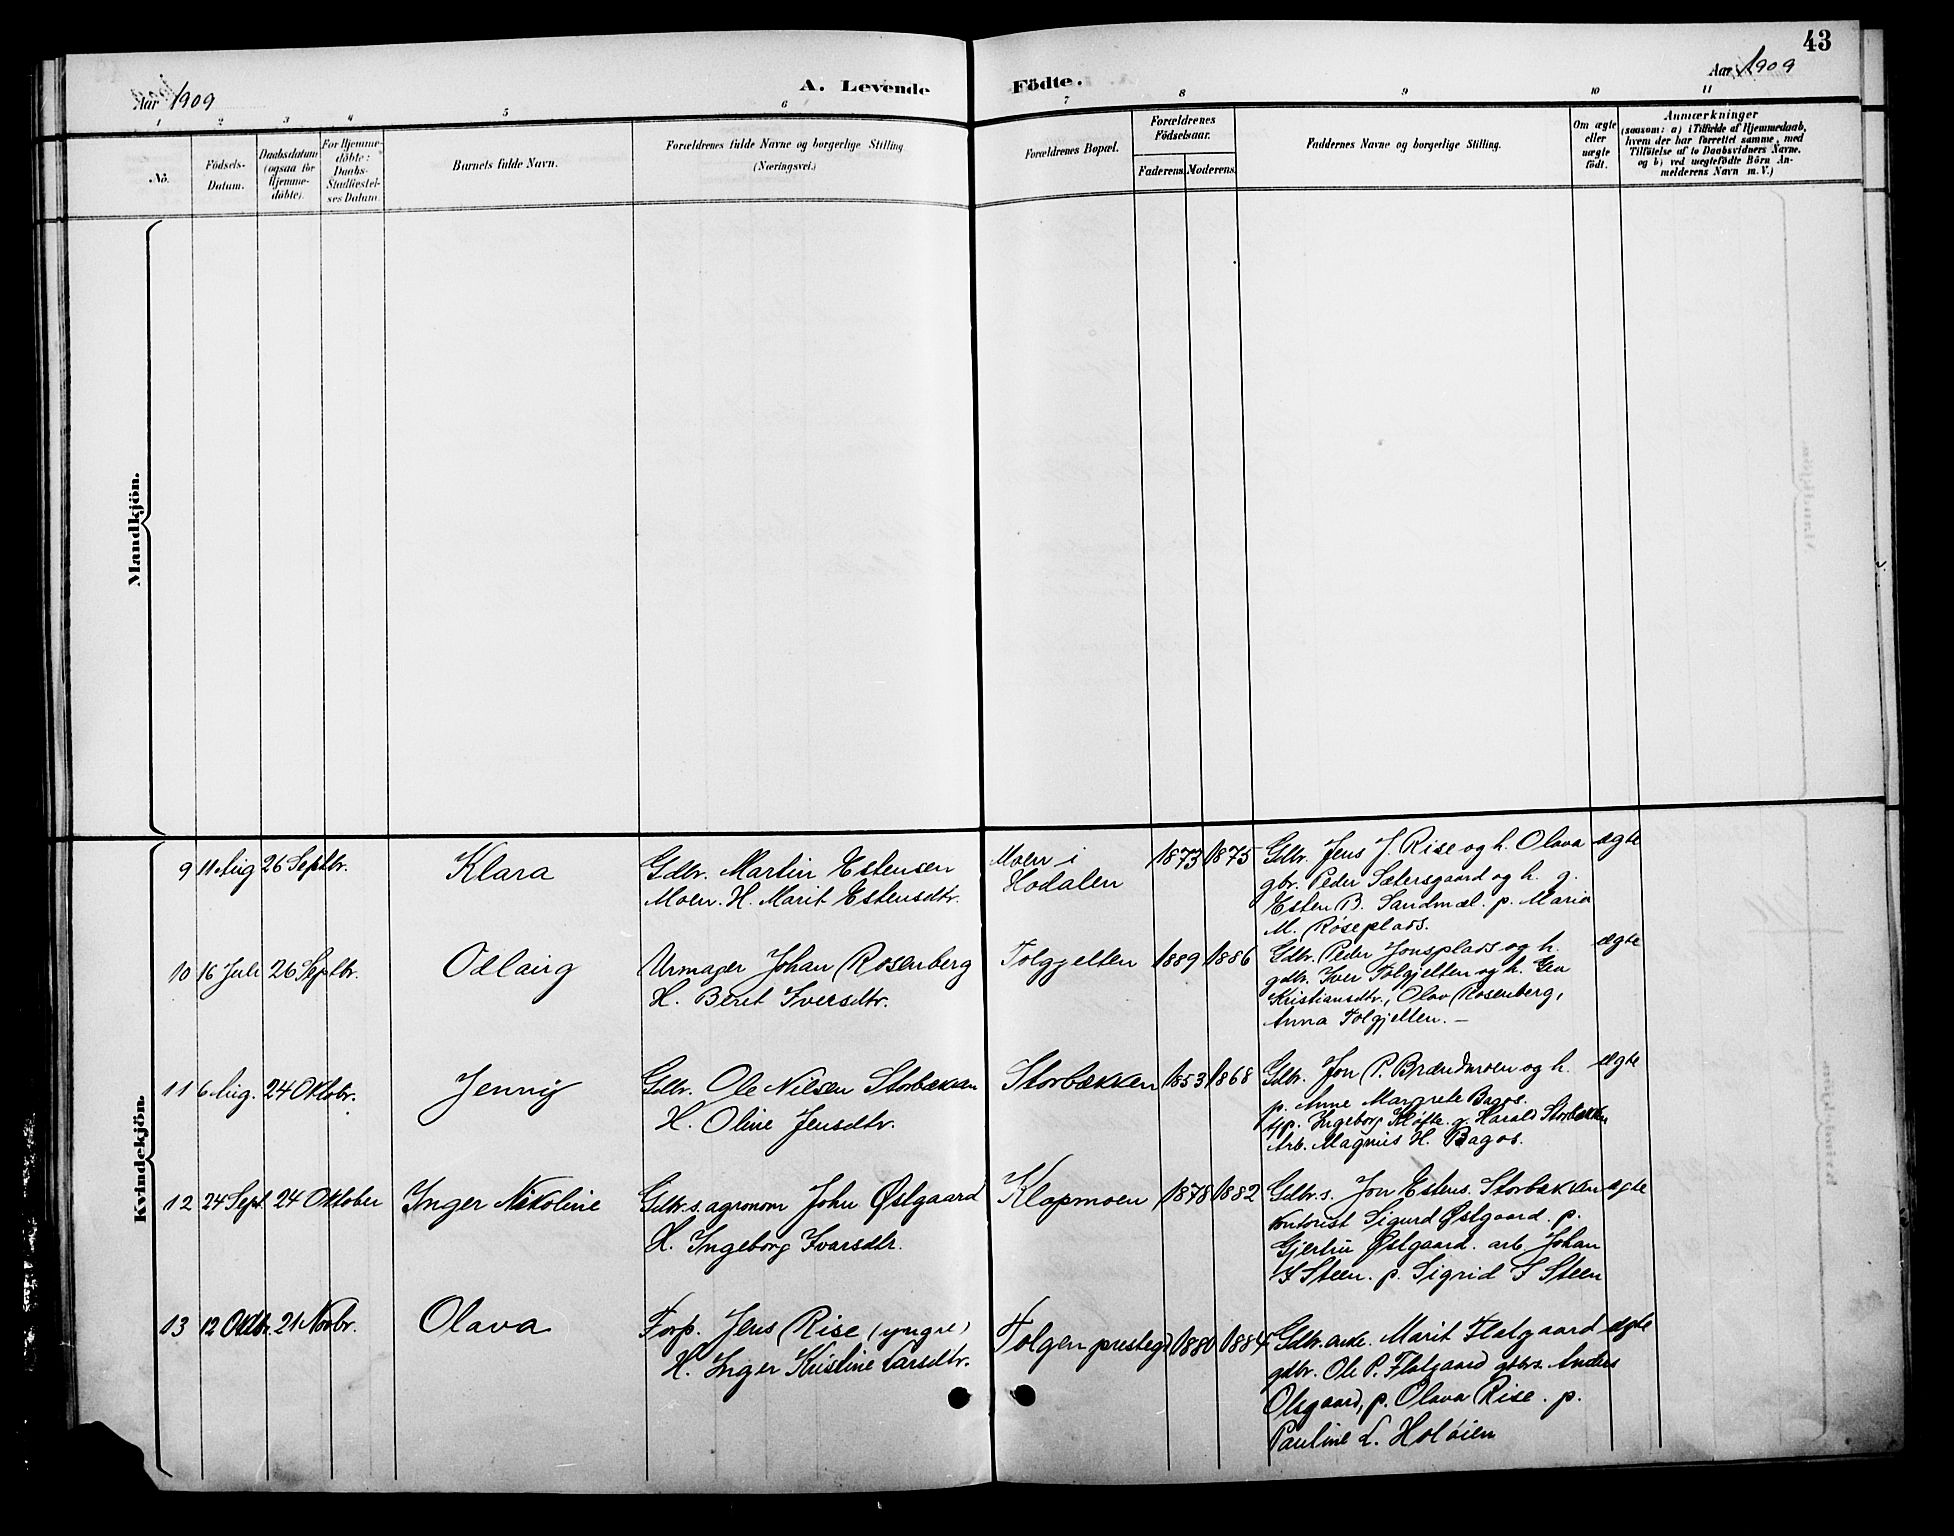 43
Aar 1909
A. Levende
Födte.
Aar 1909
1 2 3 4 5 6 7 8 9 10 11
No.
Födsels-
Datum.
Daabsdatum
(ogsaa for
Hjemme-
döbte).
For Hjemme-
döbte:
Daabs-
Stadfæstel-
ses Datum.
Barnets fulde Navn.
Forældrenes fulde Navne og borgerlige Stilling
(Næringsvei.)
Forældrenes Bopæl.
Forældrenes
Födselsaar.
Faderens. Moderens.
Faddernes Navne og borgerlige Stilling.
Om ægte
eller
uægte
födt.
Anmærkninger
(saasom: a) i Tilfælde af Hjemmedaab,
hvem der har forrettet samme, med
Tilföielse af to Daabsvidners Navne,
og b) ved uegtefödte Börn An-
melderens Navn m. V.)
Mandkjön.
Kvindekjön.
9 11 Aug 26 Septbr. Klara
Gdbr. Martin Estensen
Moen. H. Marit Estensdtr.
Moen i
Hodalen
1873 1875
Gdbr. Jens J. Rise og h. Olava
gbr. Peder Sætersgaard og h. g.
Esten B. Sandmæl. p. Maria
M. Røseplads.
ægte
10 16 Juli 26 Septbr. Odlaug
Urmager Johan Rosenberg
H. Beret Iversdtr.
Tolgjelten 1889 1886
Gdbr. Peder Jonsplads og h.
gdbr. Iver Tolgjelten og h. Gea
Kristiansdtr., Olav Rosenberg,
Anna Tolgjelten. —
ægte
11 6 Aug. 24 Oktobr. Jenny
Gdbr. Ole Nilsen Storbækken
H. Oline Jensdtr.
Storbækken 1853 1868
Gdbr. Jon P. Brændmoen og h.
p. Anne Margrete Bagos.
tjp. Ingeborg Kløfte. g. Harald Storbækken
Arb. Magnus H. Bagos.
ægte
12 24 Sept. 24 Oktober Inger Nikoline
Gdbr.s. agronom John Østgaard
H. Ingeborg Ivarsdtr.
Klopmoen 1878 1882
Gdbr.s. Jon Estens. Storbækken
Kontorist Sigurd Østgaard. p.
Gjertru Østgaard. arb. Johan
I Steen. p. Sigrid I Steen
ægte
13 12 Oktbr. 21 Novbr. Olava
Forp. Jens Rise (yngre)
H. Inger Kristine Larsdtr.
Tolgen presteg. 1880 1884
Gdbr. enke. Marit Flatgaard
gdbr. Ole P. Flatgaard gdbrs. Anders
Olsgaard, p. Olava Rise. p.
Pauline L. Holøien
ægte